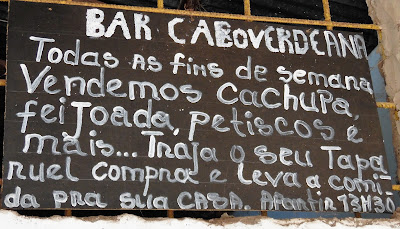 BAR CABOVERDEANA
Todas as fins de semana
Vendemos cachupa,
feijoada, petiscos e
mais... Traja o seu Tapa
ruel compra e leva a comi
da pra sua CASA. Apartir 13H30